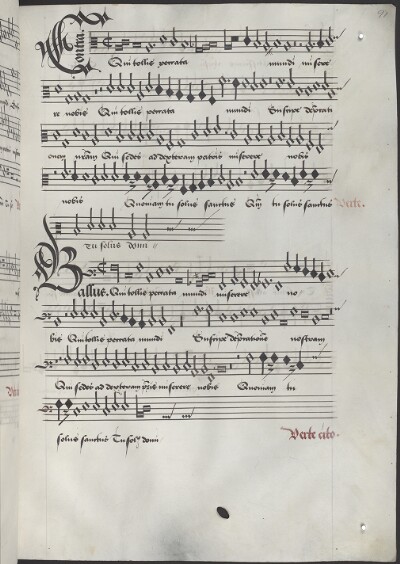 Contra
Qui tollis peccata mundi misere
re nobis Qui tollis peccata mundi Suscipe deprecati
onem nostram Qui sedes ad dexteram patris miserere nobis
nobis Quoniam tu solus sanctus Qm tu solus sanctus Verte.
Tu solus domi
Bassus. Qui tollis peccata mundi miserere no
bis Qui tollis peccata mundi Suscipe deprecationem nostram
Qui sedes ad dexteram pris miserere nobis Quoniam tu
solus sanctus Tu sol domi Verte cito.